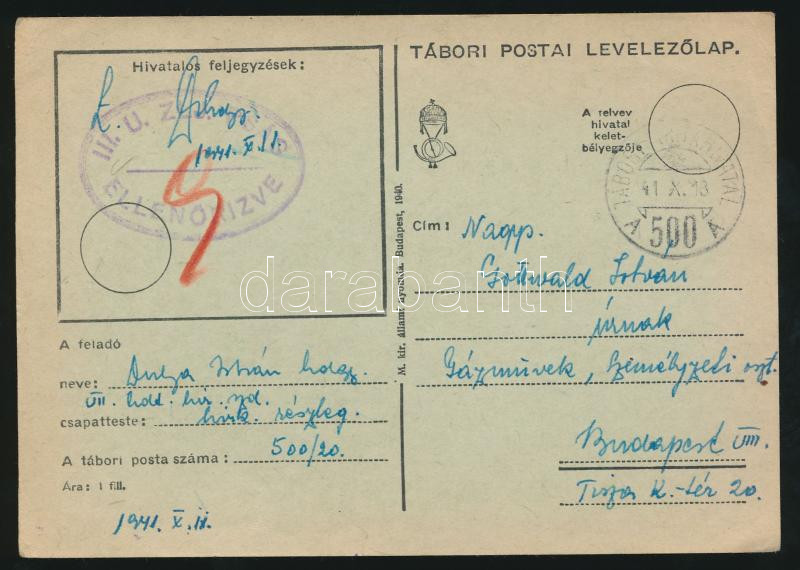 Hivatalos feljegyzések:
1941. X. 11.
III. U. Z.
ELLENŐRIZVE
TÁBORI POSTAI LEVELEZŐLAP.
A relvev
hivatal
kelet-
bélyegzője
TÁBORI POSTAHIVATAL
41 X. 13
A 500 A
Cím: Nagys.
Gottwald István
úrnak
Gázművek, Személyzeti oszt.
Budapest VIII.
Tisza K.-tér 20.
M. kir. államnyomda. Budapest, 1940.
A feladó
neve: István hdgy.
VII. hdt. hír. zlj.
csapatteste: részleg.
A tábori posta száma: 500/20.
Ára: 1 fill.
1941. X. 11.
darabanth